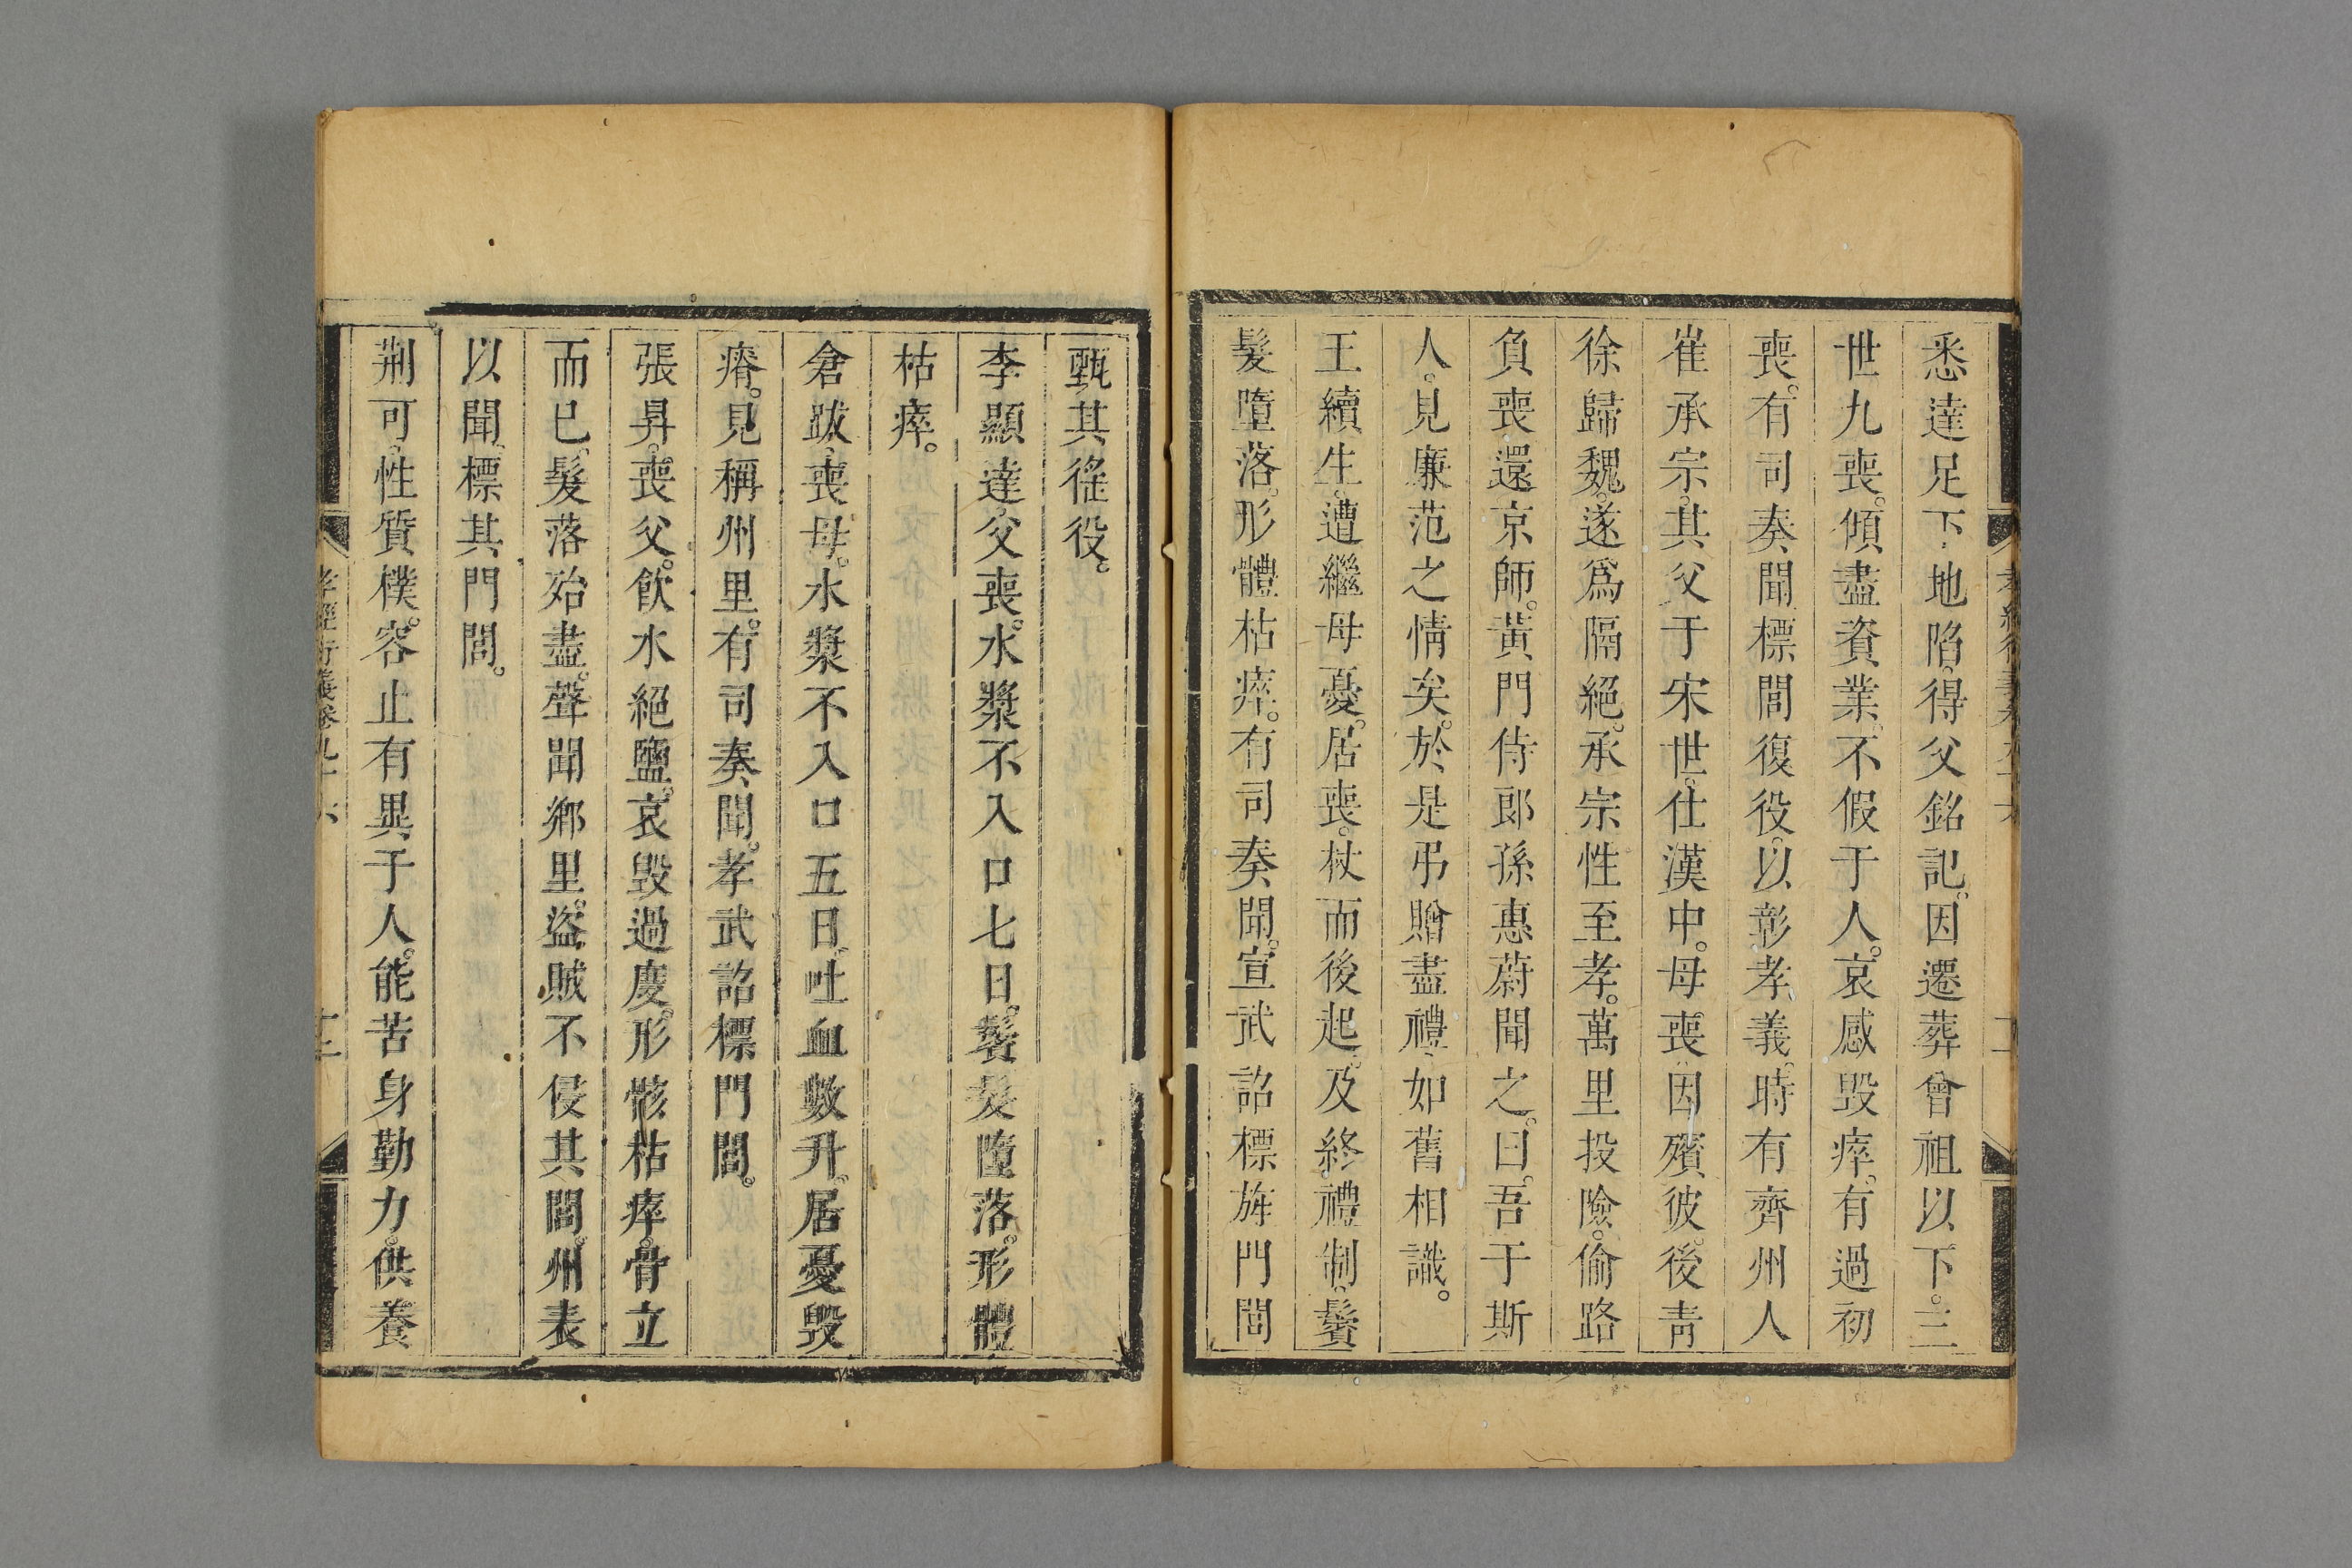 悉達足下地陷。得父銘記。因遷葬曾祖以下。三
世九喪。傾盡資業。不假于人。哀感毀瘁。有過初
喪。有司奏聞標閭復役。以彰孝義。時有齊州人
崔承宗。其父于宋世。仕漢中。母喪。因殯彼。後青
徐歸魏。遂爲隔絕。承宗性至孝。萬里投險。偷路
負喪還京師。黃門侍郎孫惠蔚聞之。曰。吾于斯
人。見廉范之情矣。於是弔贈盡禮。如舊相識。
王續生。遭繼母憂。居喪。杖而後起。及終禮制。鬢
髮墮落。形體枯瘁。有司奏聞。宣武詔標旌門閭
甄其徭役。
李顯達。父喪。水漿不入口七日。鬢髮墮落。形體
枯瘁。
倉跋。喪母。水漿不入口五日。吐血數升。居憂毀
瘠。見稱州里。有司奏聞。孝武詔標門閭。
張昇。喪父。飲水絕鹽。哀毀過度。形骸枯瘁。骨立
而已。髮落殆盡。聲聞鄉里。盜賊不侵其閭。州表
以聞。標其門閭。
荊可。性質樸。容止有異于人。能苦身勤力。供養
孝經衍義卷九十六